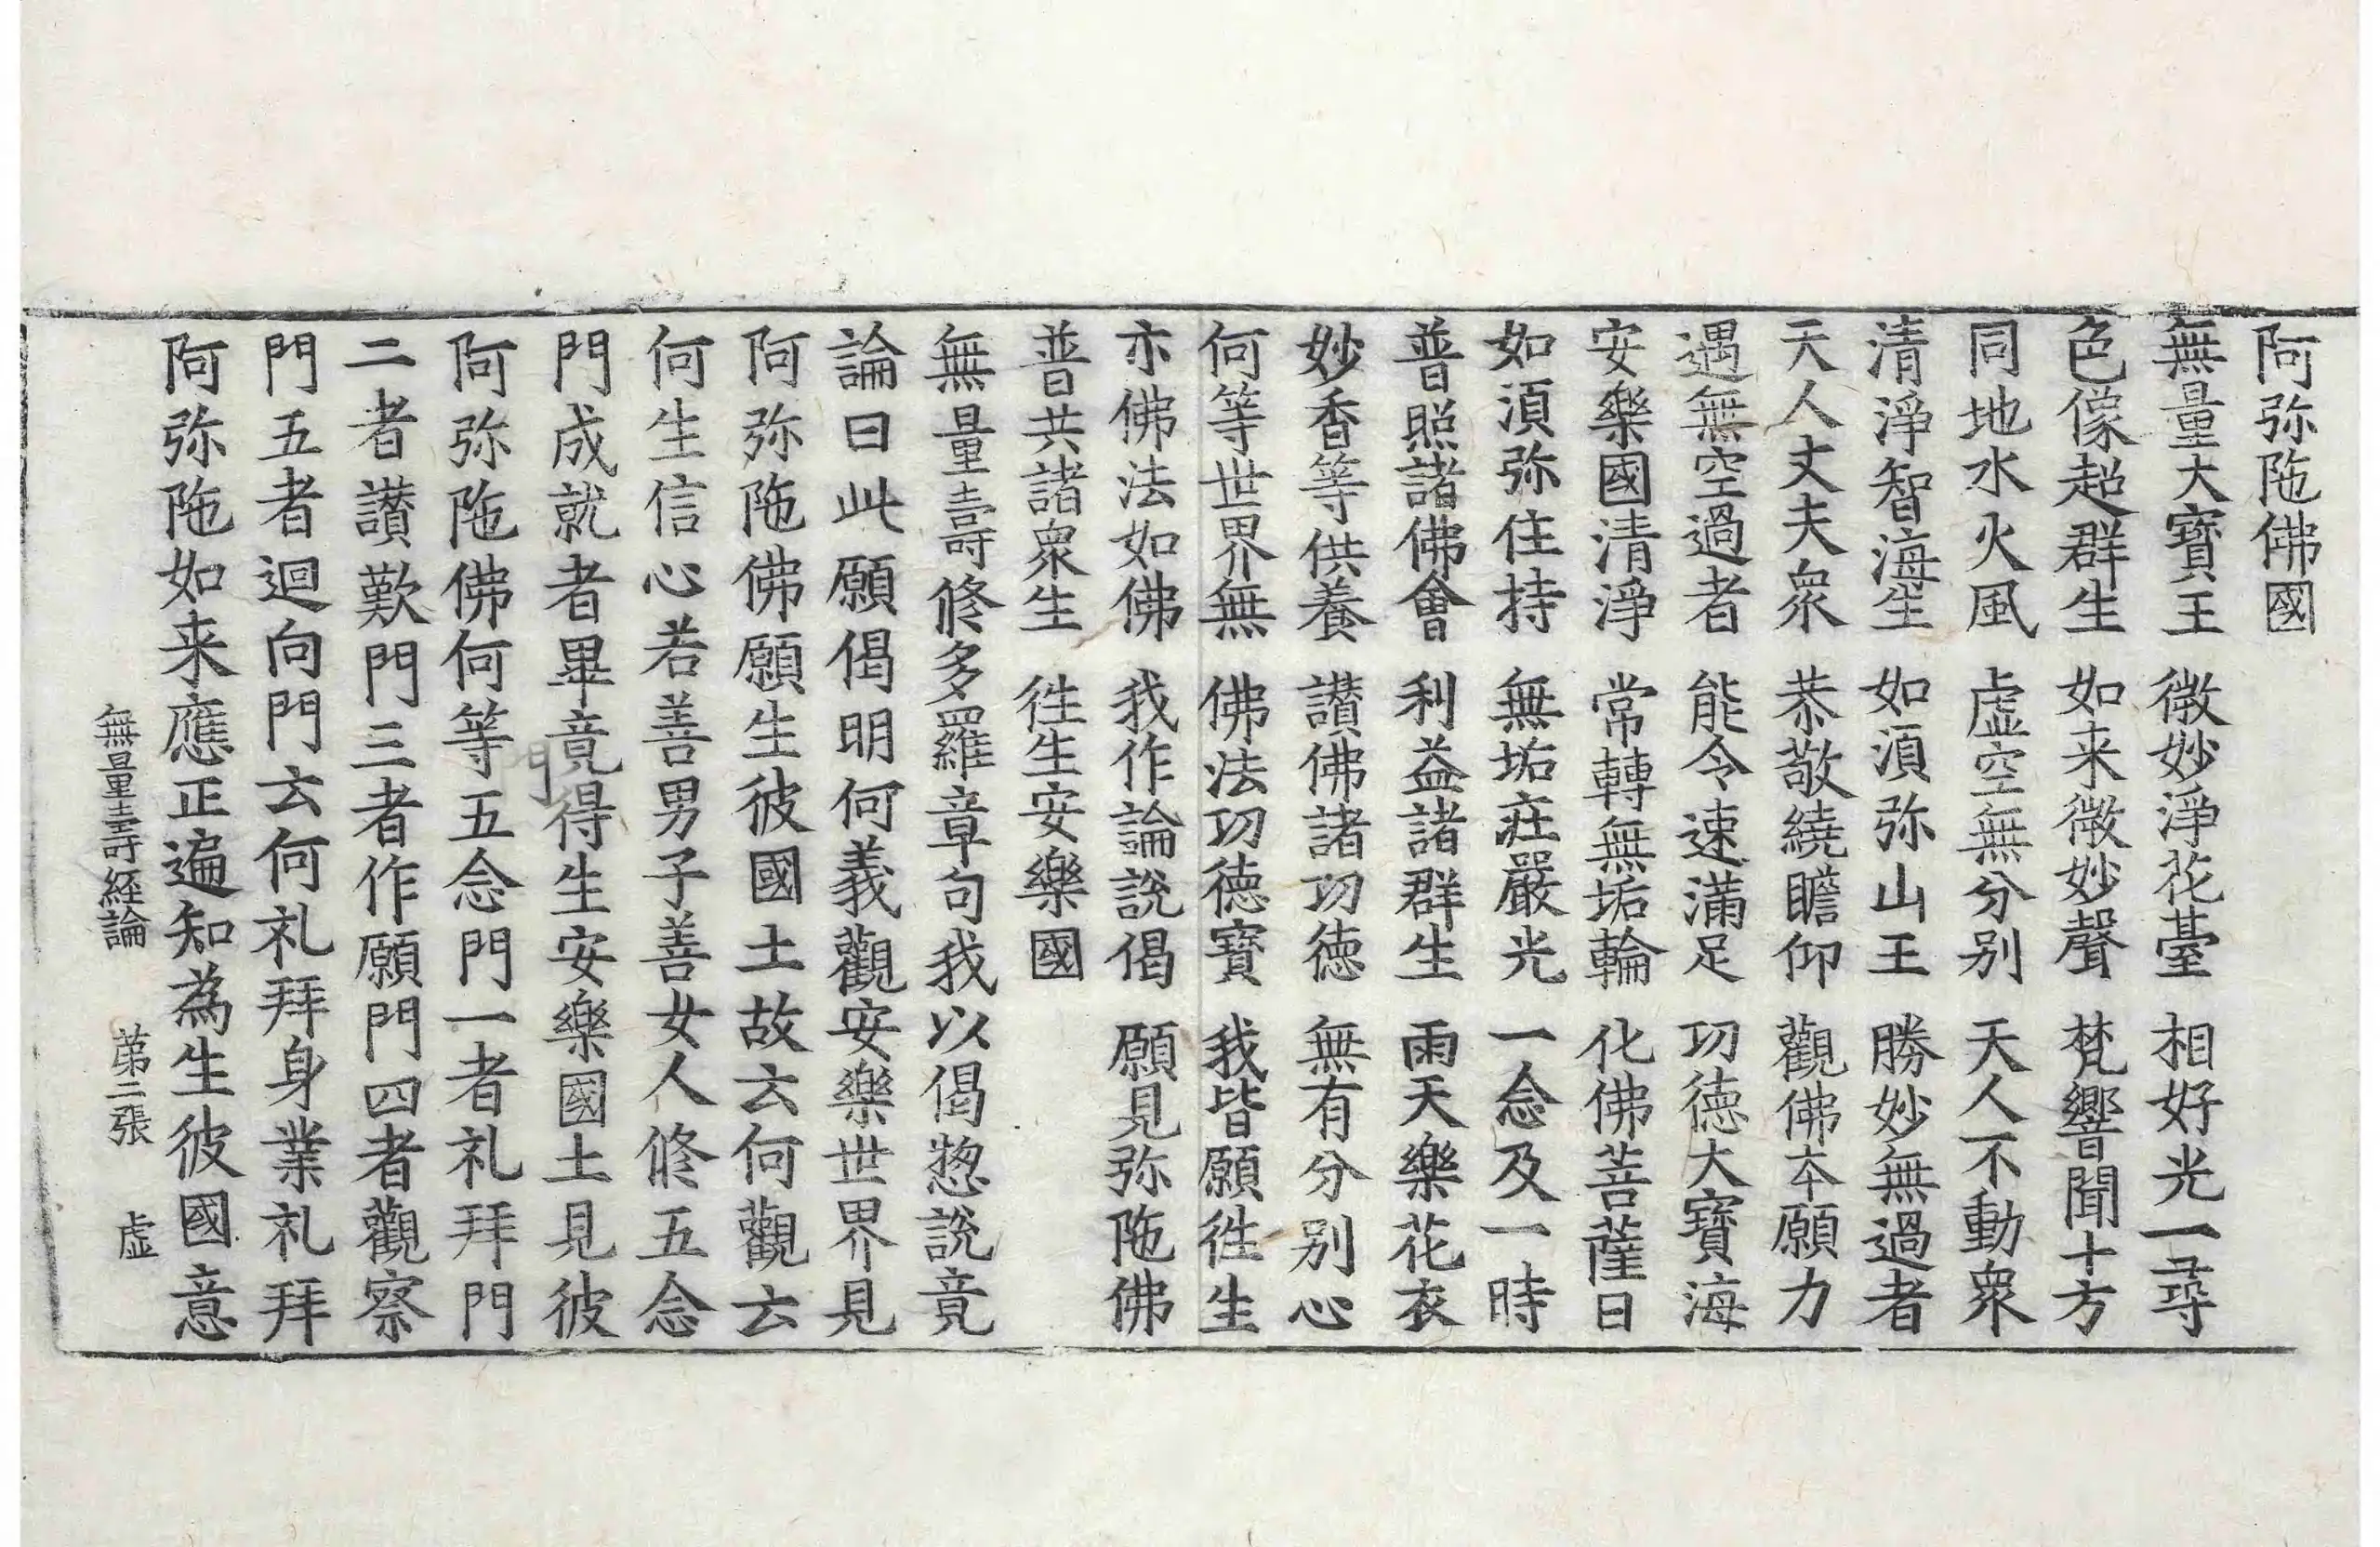 阿弥陁佛國
無量大寶王 微妙淨花臺 相好光一尋
色像超群生 如来微妙聲 梵響聞十方
同地水火風 虚空無分别 天人不動衆
清淨智海生 如湏弥山王 勝妙無過者
天人丈夫衆 恭敬繞瞻仰 觀佛夲願力
遇無空過者 能令速滿足 功徳大寶海
安樂國清淨 常轉無垢輪 化佛菩薩日
如湏弥住持 無垢莊嚴光 一念及一時
普照諸佛會 利益諸群生 雨天樂花衣
妙香等供養 讃佛諸功徳 無有分别心
何等世界無 佛法功徳寶 我皆願徃生
亦佛法如佛 我作論說偈 願見弥陁佛
普共諸衆生 徃生安樂國
無量壽修多羅章句我以偈揔說竟
論曰此願偈明何義觀安樂世界見
阿弥陁佛願生彼國土故云何觀云
何生信心若善男子善女人修五念
門成就者畢竟得生安樂國土見彼
阿弥陁佛何等五念門一者礼拜門
二者讃歎門三者作願門四者觀察
門五者迴向門云何礼拜身業礼拜
阿弥陁如来應正遍知為生彼國意
無量壽経論 苐二張 虚